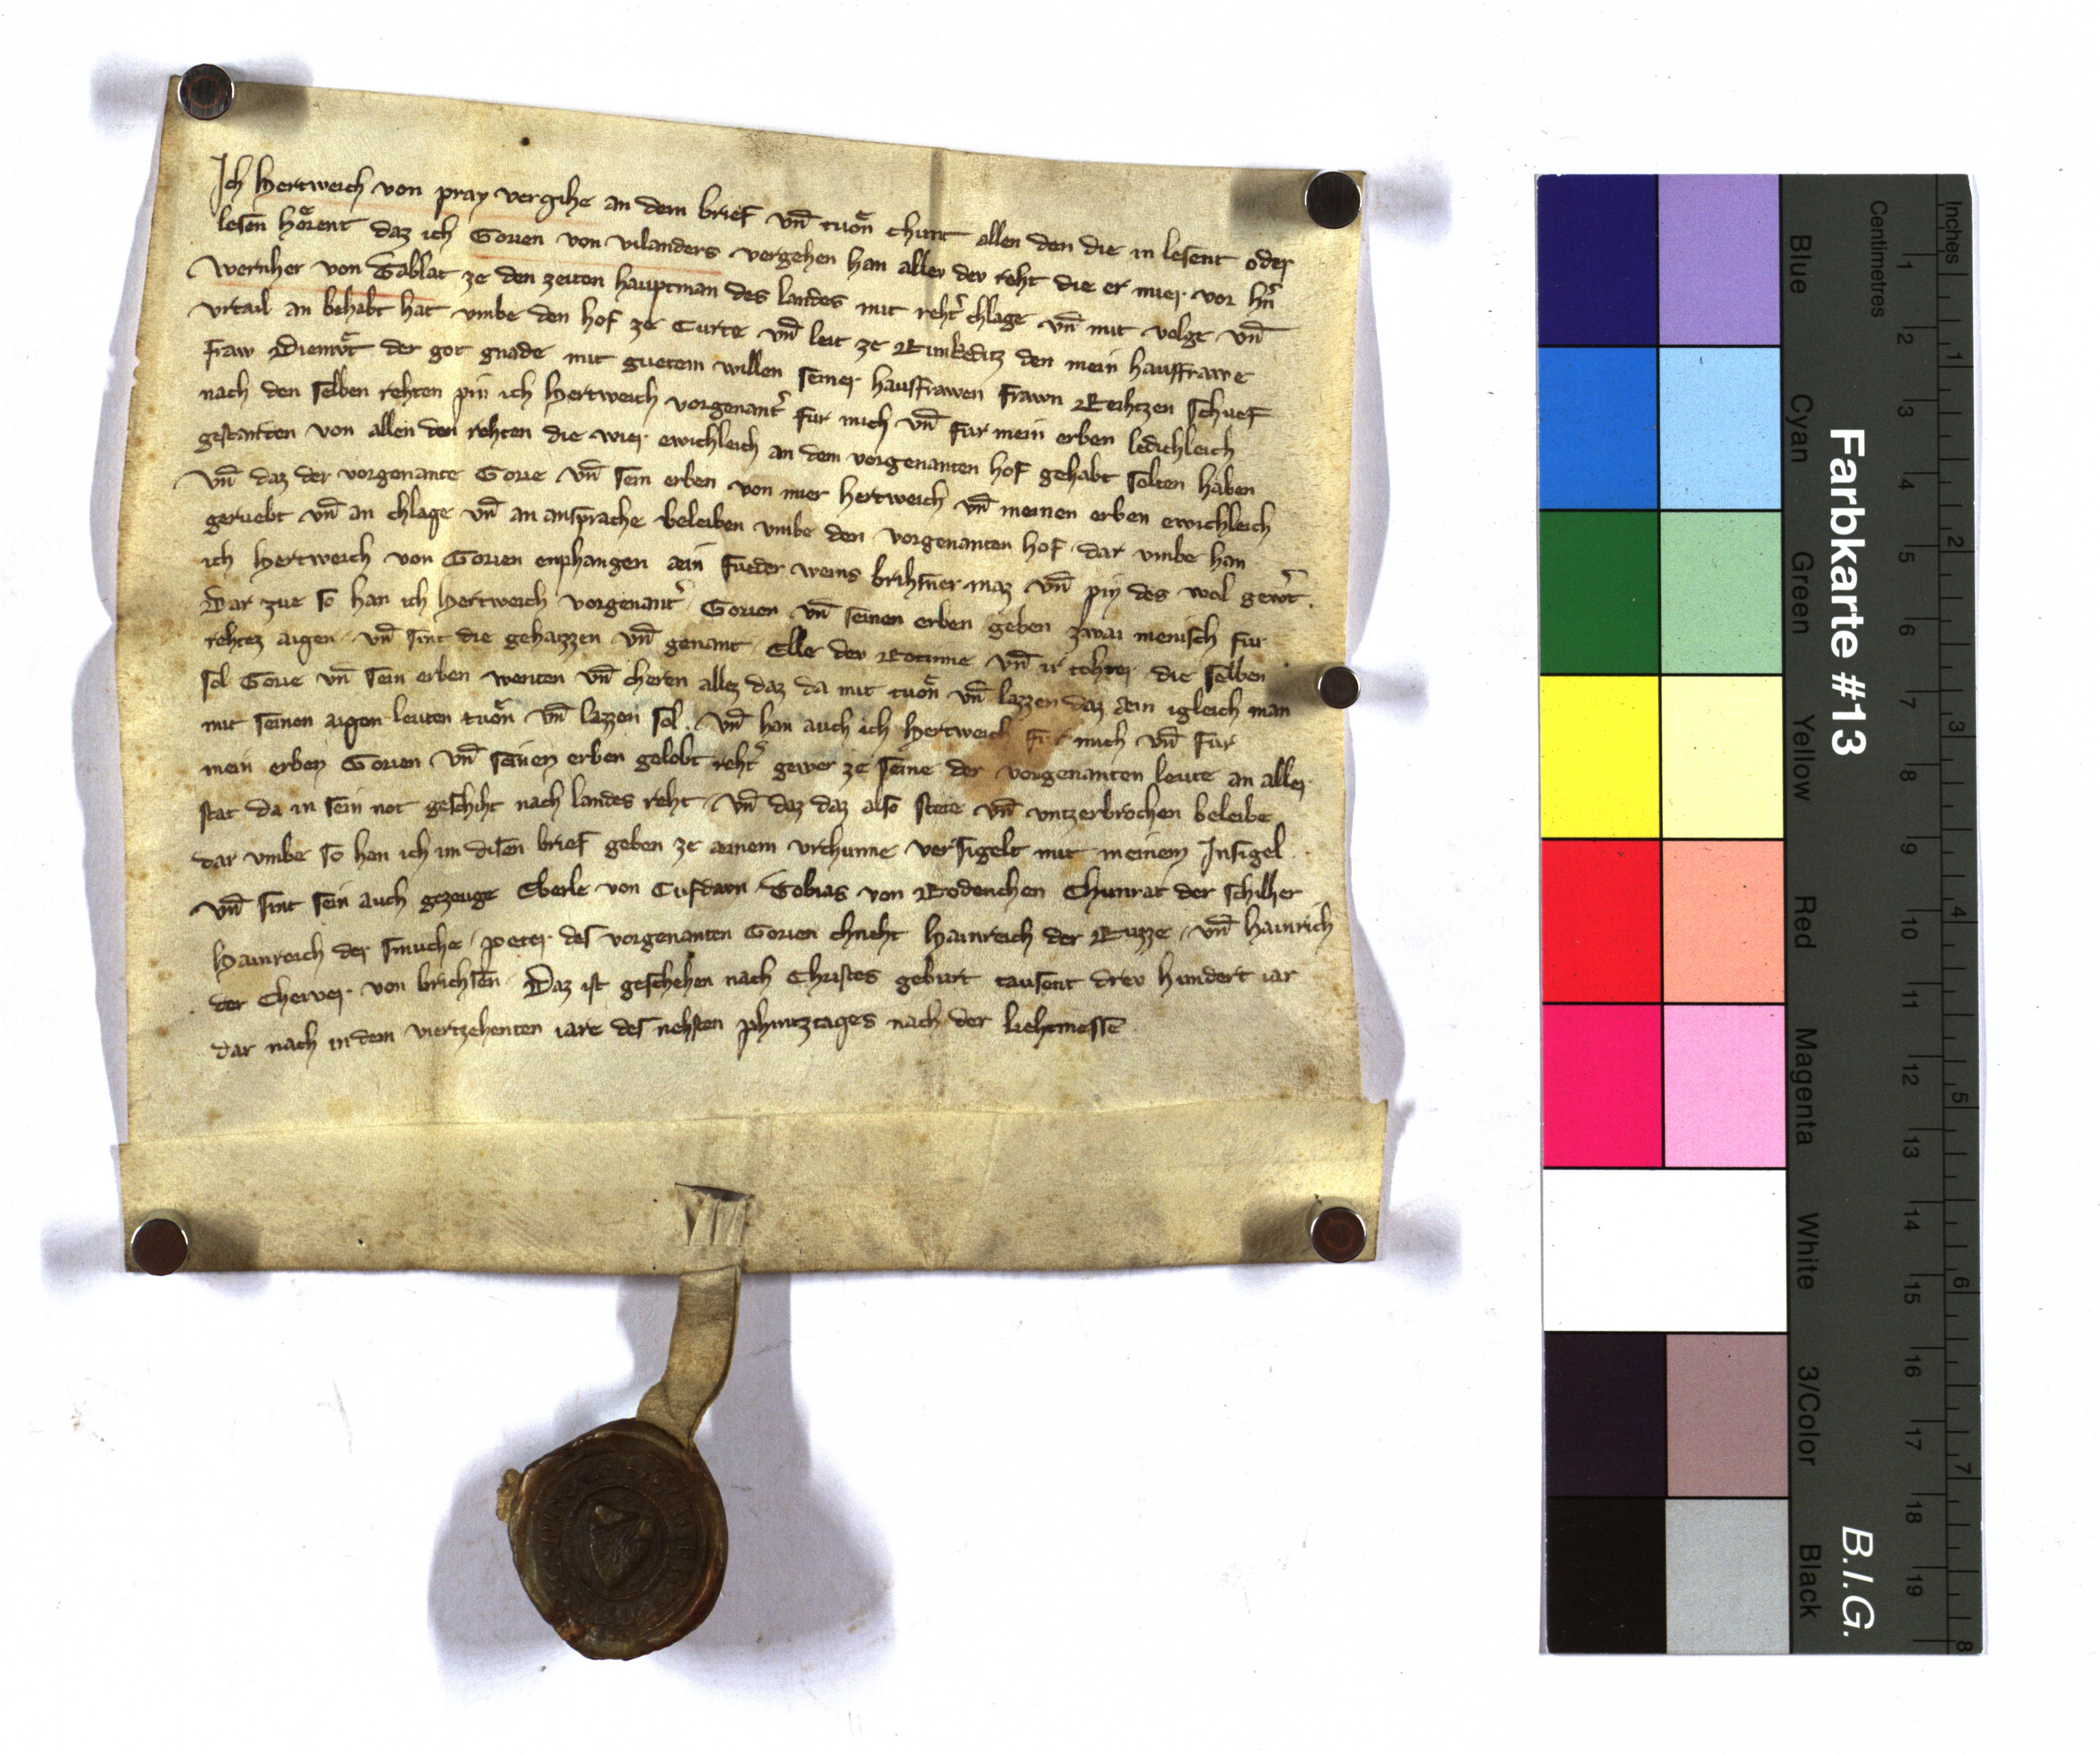 Ich Hertweich von pray vergihe an dem brief vn̄ tuͦn chunt allen den die in lesent oder
lesen hoͤrent daz ich Gorien von vilanders vergehen han aller der reht die er mier vor hn̄
Wernher von Tablat ze den zeiten hauptman des landes mit reht̉ chlage vn̄ mit volge vn̄
vrtail an behabt hat vmbe den hof ze Curte vn̄ leit ze Runkeditz den mein hausfrawe
fraw Diemuͤt der got gnade mit guetem willen seiner hausfrawen frawn Reihzen schuef
nach den selben rehten pin ich Hertweich vorgenant̉ fur mich vn̄ fur mein erben ledichleich
gestanden von allen den rehten die wier ewichleich an dem vorgenanten hof gehabt solten haben
vn̄ daz der vorgenante Gorie vn̄ sein erben von mier hertweich vn̄ meinen erben ewichleich
geruebt vn̄ an chlage vn̄ an ansprache beleiben vmbe den vorgenanten hof dar vmbe han
ich Hertweich von Gorien enphangen aein fueder weins brihsner maz vn̄ pin des wol gewert̉.
Dar zue so han ich Hertweich vorgenant̉ Gorien vn̄ seinen erben geben zwai menisch fur
rehtez aigen vn̄ sint die gehaizzen vn̄ genant Elle der Rotinne vn̄ ir tohter die selben
sol Gorie vn̄ sein erben wenten vn̄ cheren allez daz da mit tuͦn vn̄ lazzen daz aein igleich man
mit seinen aigen leuten tuͦn vn̄ lazzen sol. vn̄ han auch ich Hertweich fur mich vn̄ fur
mein erben Gorien vn̄ seinen erben gelobt reht̉ gewer ze seine der vorgenanten leute an aller
stat da in sein not geschiht nach landes reht vn̄ daz daz also stete vn̄ vntzerbrochen beleibe
dar vmbe so han ich im disen brief geben ze aeinem vrchunne versigelt mit meinem Insigel.
vn̄ sint sein auch gezeuge Eberle von Cufdawn Tobias von Rodenchen Chunrat der schilher
Hainreich der smuche peter des vorgenanten Gorien chneht Hainreich der Ruzze vn̄ Hainrich
der Cherner von brichsen Daz ist geschehen nach Christes geburt tausent drev hundert iar
dar nach in dem viertzehenten iare des nehsten phintztages nach der liehtmesse
Farbkarte #13
B.I.G.
Blue Cyan Green Yellow Red Magenta White 3/Color Black
Centimetres 1 2 3 4 5 6 7 8 9 10 11 12 13 14 15 16 17 18 19
Inches 1 2 3 4 5 6 7 8